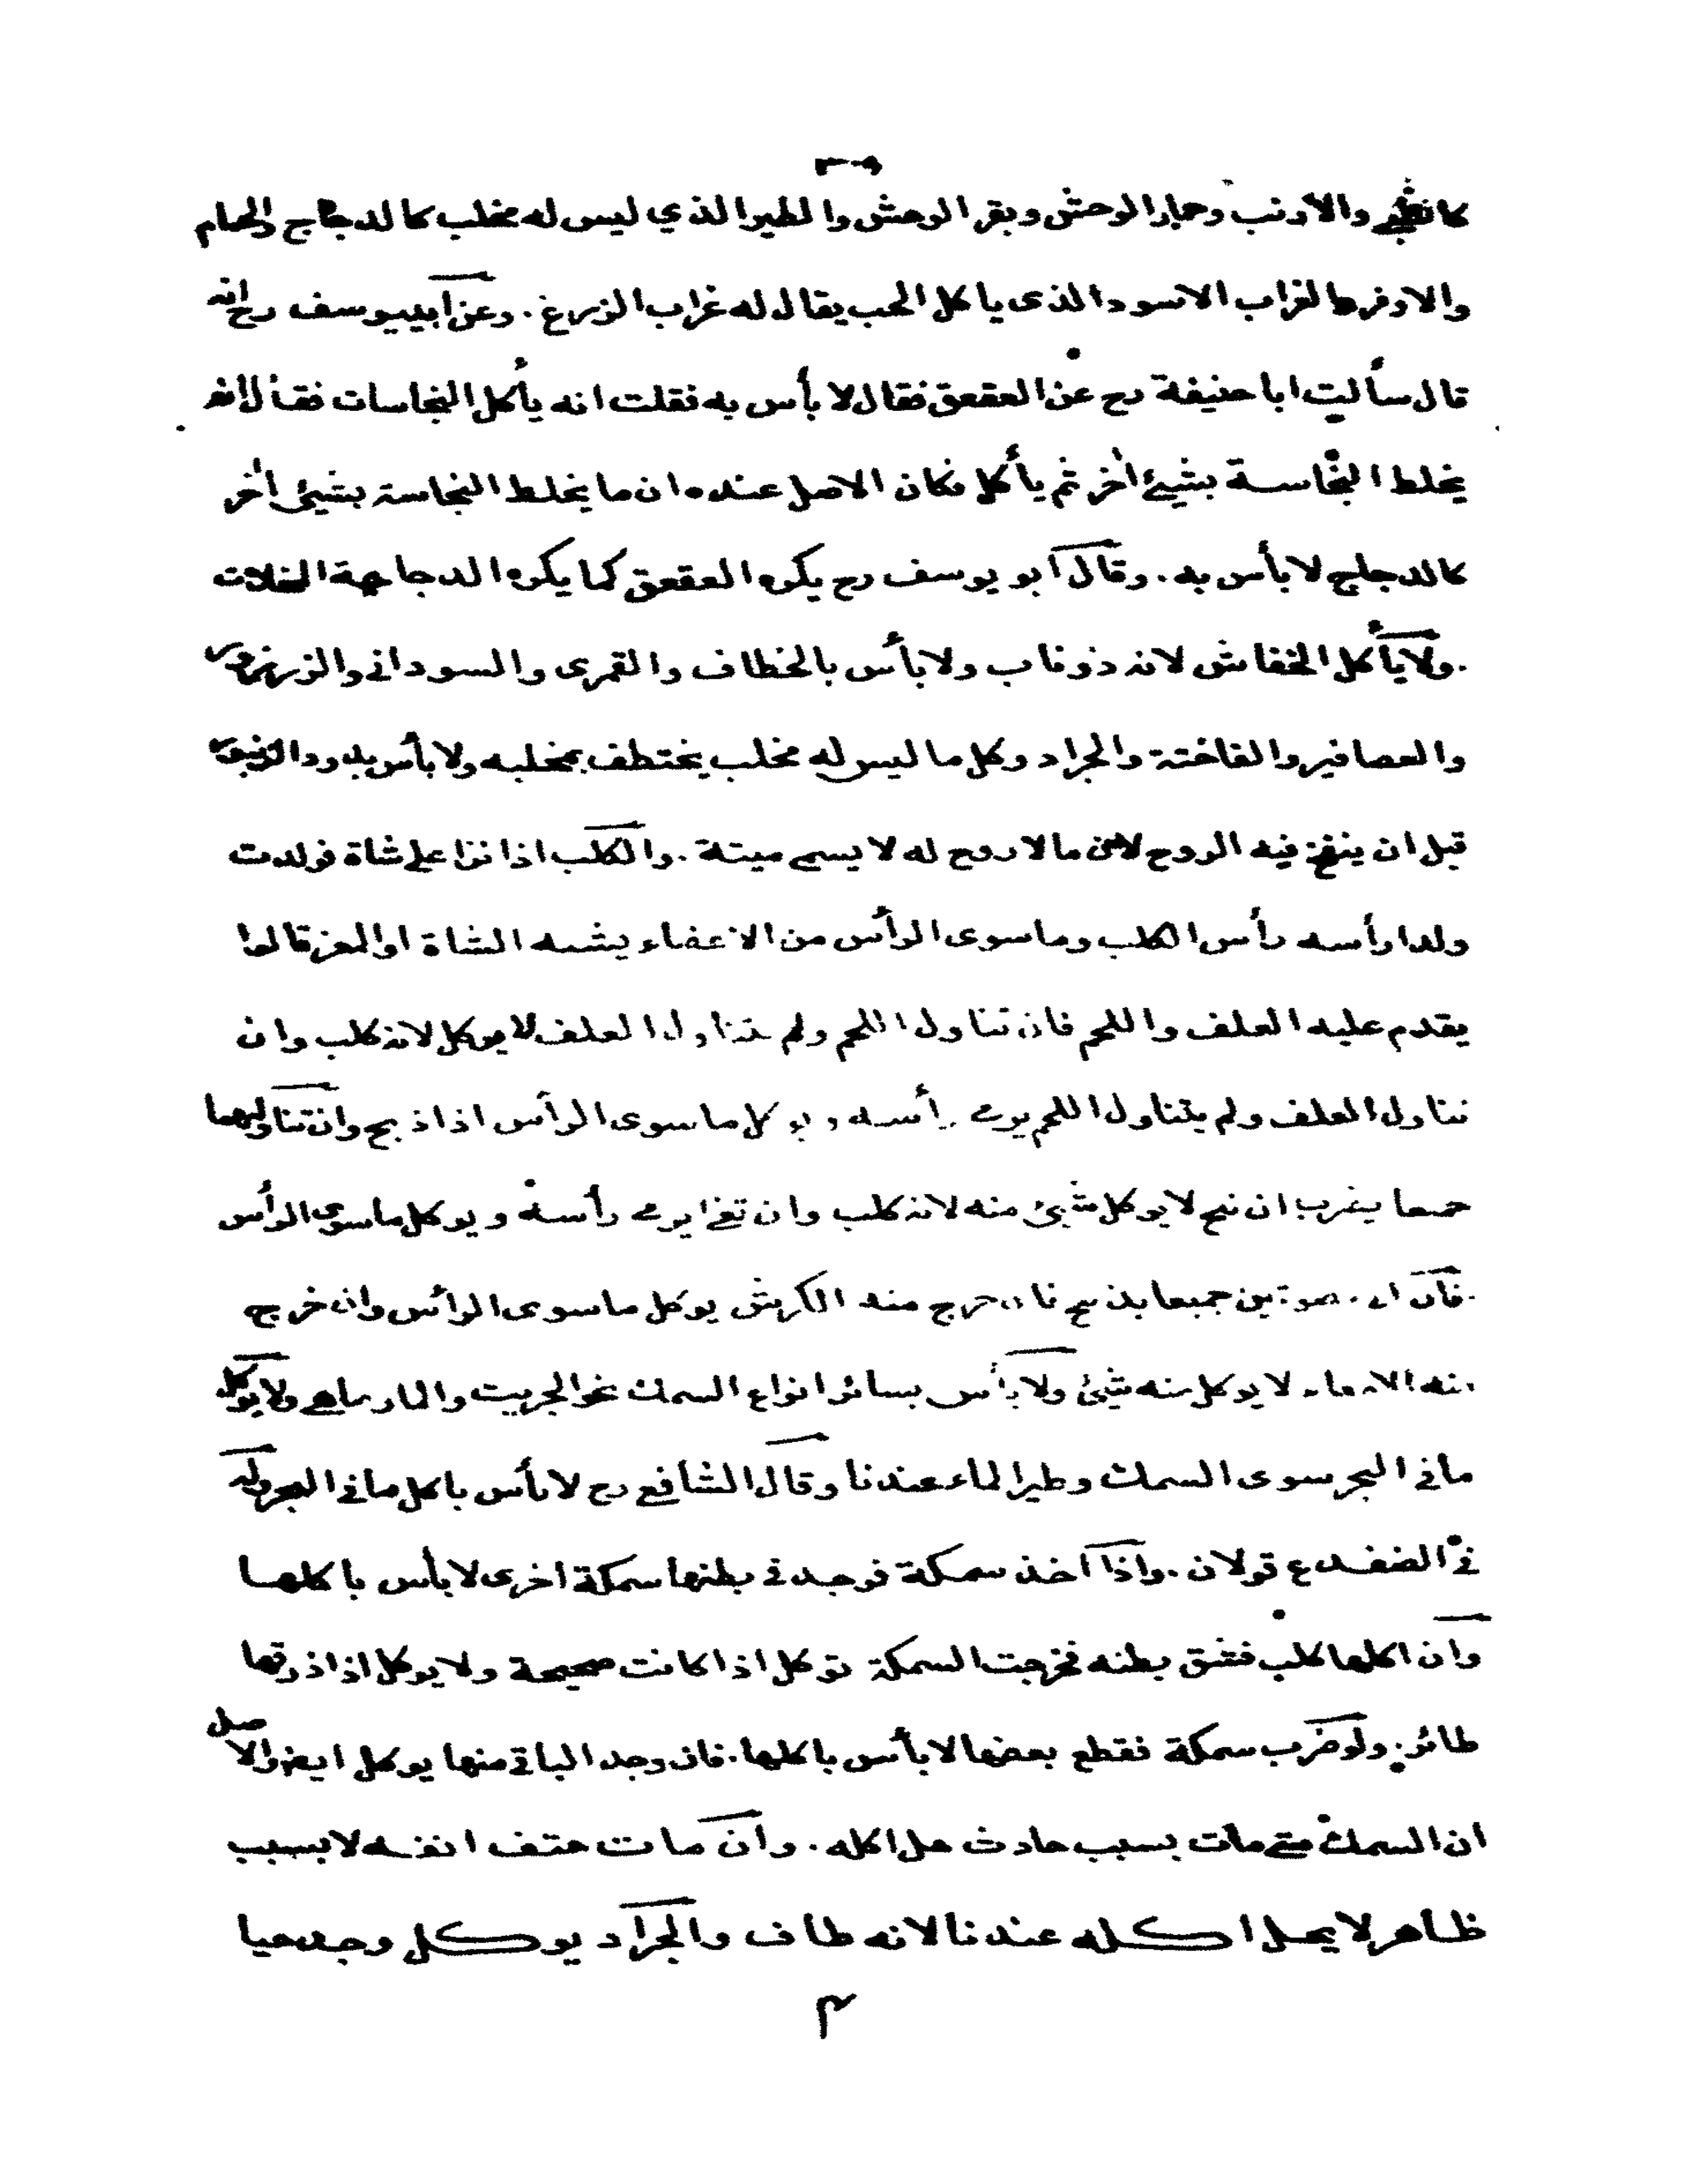 كالظبي والارنب وحمار الوحش وبقر الوحش والطير الذي ليس له مخلب كالدجاج والحمام
والاوز والغراب الاسود الذى ياكل الحب يقال له غراب الزرع . وعن ابييوسف رح انه
قال سألت ابا حنيفة رح عن العقعق فقال لا بأس به فقلت انه يأكل النجاسات فقال انه
يخلط النجاسة بشيئ اٰخر ثم يأكل فكان الاصل عنده ان ما يخلط النجاسة بشيئ اٰخر
كالدجاج لا بأس به . وقال ابو يوسف رح يكره العقعق كما يكره الدجاجة المخلات
. ولا يأكل الخفاش لانه ذو ناب ولا بأس بالخطاف والقمرى والسودانى والزرزور
والعصافير والفاختة والجراد وكل ما ليس له مخلب يختطف بمخلبه ولا بأس بدود الزنبور
قبل ان ينفخ فيه الروح لان ما لا روح له لا يسمى ميتة . والكلب اذا نزا على شاة فولدت
ولدا رأسه رأس الكلب وما سوى الرأس من الاعضاء يشبه الشاة او المعز قالوا
يقدم عليه العلف واللحم فان تناول اللحم ولم يتناول العلف لا يوكل لانه كلب وان
تناول العلف ولم يتناول اللحم يرمى رأسه ويوكل ما سوى الرأس اذا ذبح وان تناولهما
جمعا يضرب ان نبح لا يوكل شيئ منه لانه كلب وان تغا يرمى رأسه ويوكل ما سوى الرأس
. فان اتى صوتين جميعا يذبح فان خرج منه الكرش يوكل ما سوى الرأس وان خرج
منه الامعاء لا يوكل منه شيئ ولا بأس بسائر انواع السمك نحو الجريت والمارماهى ولا يوكل
مافى البحر سوى السمك وطير الماء عندنا وقال الشافعى رح لا بأس باكل مافى البحر وله
فى الضفدع قولان . واذا اخذ سمكة فوجد فى بطنها سمكة اخرى لا بأس باكلها
وان اكلها كلب فشق بطنه فخرجت السمكة توكل اذا كانت صحيحة ولا يوكل اذا ذرقها
طائر . ولو ضرب سمكة فقطع بعضها لا بأس باكلها . فان وجد الباقى منها يوكل ايضا والاصل
ان السمك متى مات بسبب حادث حل اكله . وان مات حتف انفه لا بسبب
ظاهر لا يحل اكله عندنا لانه طاف والجراد يوكل وجد حيا
م